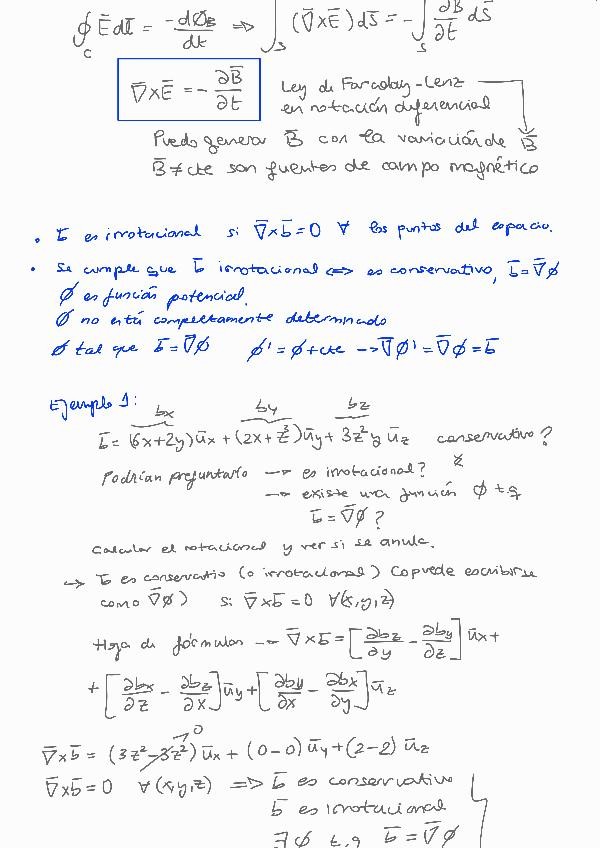 ∮_C Ē dl̄ = -dØ_B/dt ⇒ ∫_S (∇̄×Ē) ds̄ = -∫_S ∂B̄/∂t ds̄
∇̄×Ē = -∂B̄/∂t Ley de Faraday-Lenz
en notación diferencial
Puedo generar B̄ con la variación de B̄
B̄ ≠ cte son fuentes de campo magnético
• b̄ es irrotacional si ∇̄×b̄ = 0 ∀ los puntos del espacio.
• Se cumple que b̄ irrotacional ⇔ es conservativo, b̄ = ∇̄Ø
Ø es función potencial.
Ø no está completamente determinado
Ø tal que b̄ = ∇̄Ø Ø' = Ø + cte → ∇̄Ø' = ∇̄Ø = b̄
Ejemplo 1: bx by bz
b̄ = (6x+2y) ūx + (2x+z³) ūy + 3z²y ūz conservativo?
Podrían preguntarlo → es irrotacional?
→ existe una función Ø t.q
b̄ = ∇̄Ø?
Calcular el rotacional y ver si se anula.
↪ b̄ es conservativo (o irrotacional) (o puede escribirse
como ∇̄Ø) si ∇̄×b̄ = 0 ∀(x,y,z)
Hoja de fórmulas → ∇̄×b̄ = [∂bz/∂y - ∂by/∂z] ūx +
+ [∂bx/∂z - ∂bz/∂x] ūy + [∂by/∂x - ∂bx/∂y] ūz
∇̄×b̄ = (3z² - 3z²) ūx + (0-0) ūy + (2-2) ūz
∇̄×b̄ = 0 ∀(x,y,z) ⇒ b̄ es conservativo
b̄ es irrotacional
∃ Ø t.q b̄ = ∇̄Ø